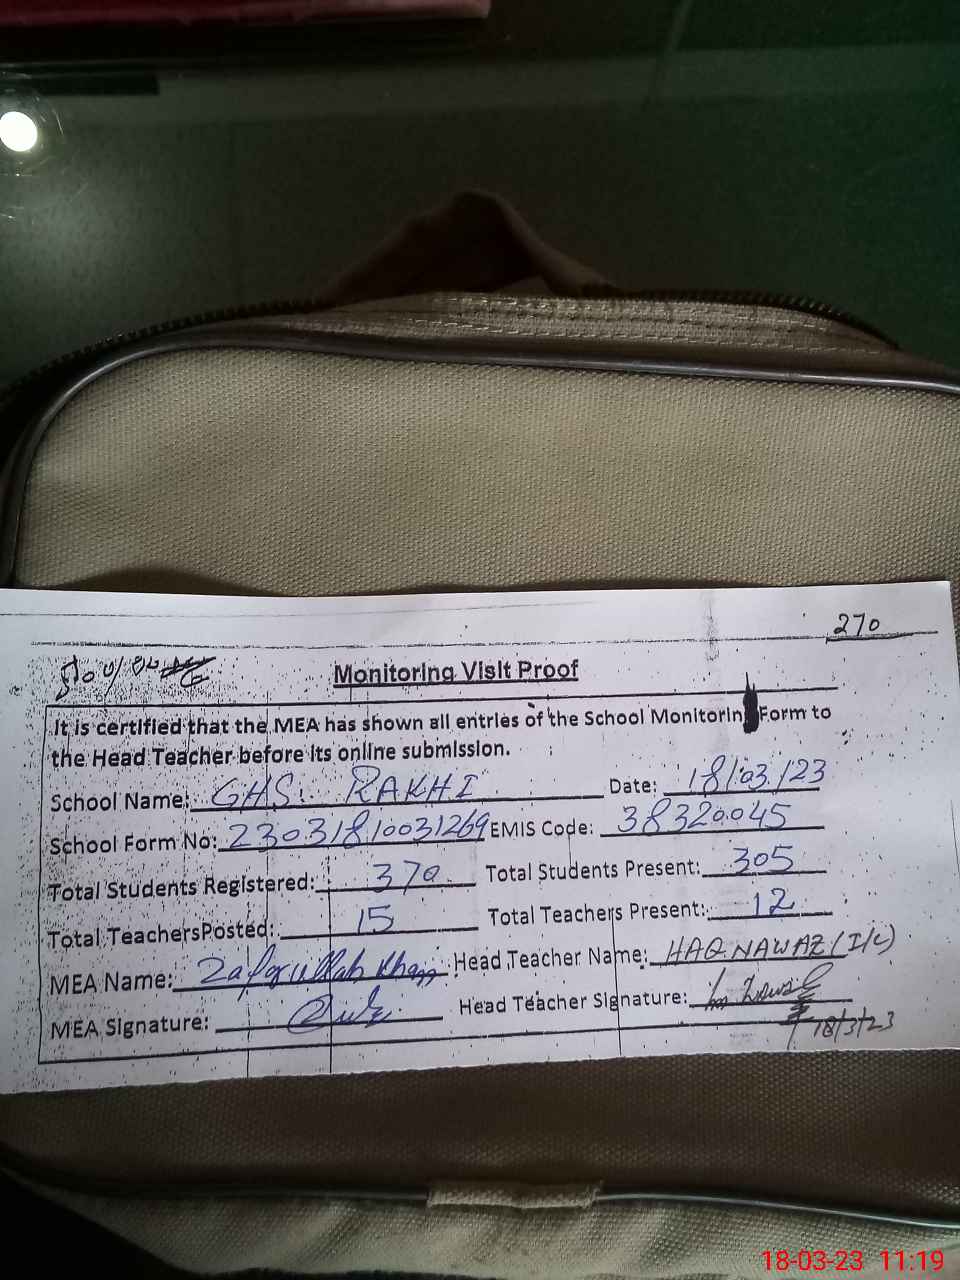 270
Monitoring Visit Proof
It is certified that the MEA has shown all entries of the School Monitoring Form to
the Head Teacher before its online submission.
School Name: GHS. RAKHI Date: 18/03/23
School Form No: 23031810031269 EMIS Code: 38320045
Total Students Registered: 370 Total Students Present: 305
Total TeachersPosted: 15 Total Teachers Present: 12
MEA Name: Zafarullah Khan Head Teacher Name: HAQ NAWAZ (I/C)
MEA Signature: Head Teacher Signature:
18/3/23
18-03-23 11:19